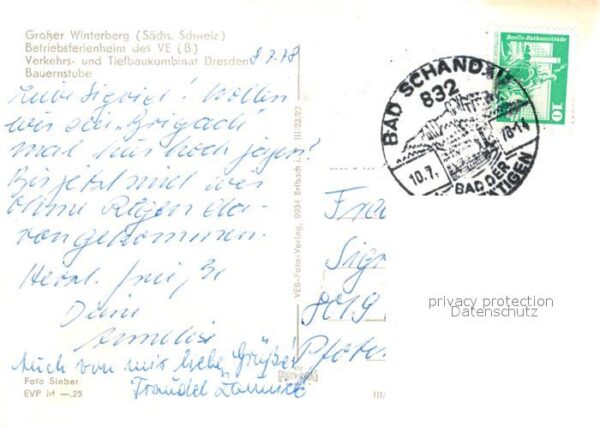 Großer Winterberg (Sächs. Schweiz)
Betriebsferienheim des VE (B)
Verkehrs- und Tiefbaukombinat Dresden
Bauernstube
8.7.78
Liebe Sigrid! Wollen
wir die „Brigade"
mal hier hoch jagen?
Bis jetzt sind wir
ohne Regen da-
von gekommen.
Herzl. Grüße
Deine
Annelies
Auch von mir liebe Grüße!
Traudel
Foto Sieber
EVP M —,25
VEB-Foto-Verlag, 9934 Erlbach i.
III/23/27
BAD SCHANDAU
832
10.7.
-8-14
BAD DER
Berlin, Rathausstraße
10
Frau
Sigr
8019
III/
privacy protection
Datenschutz